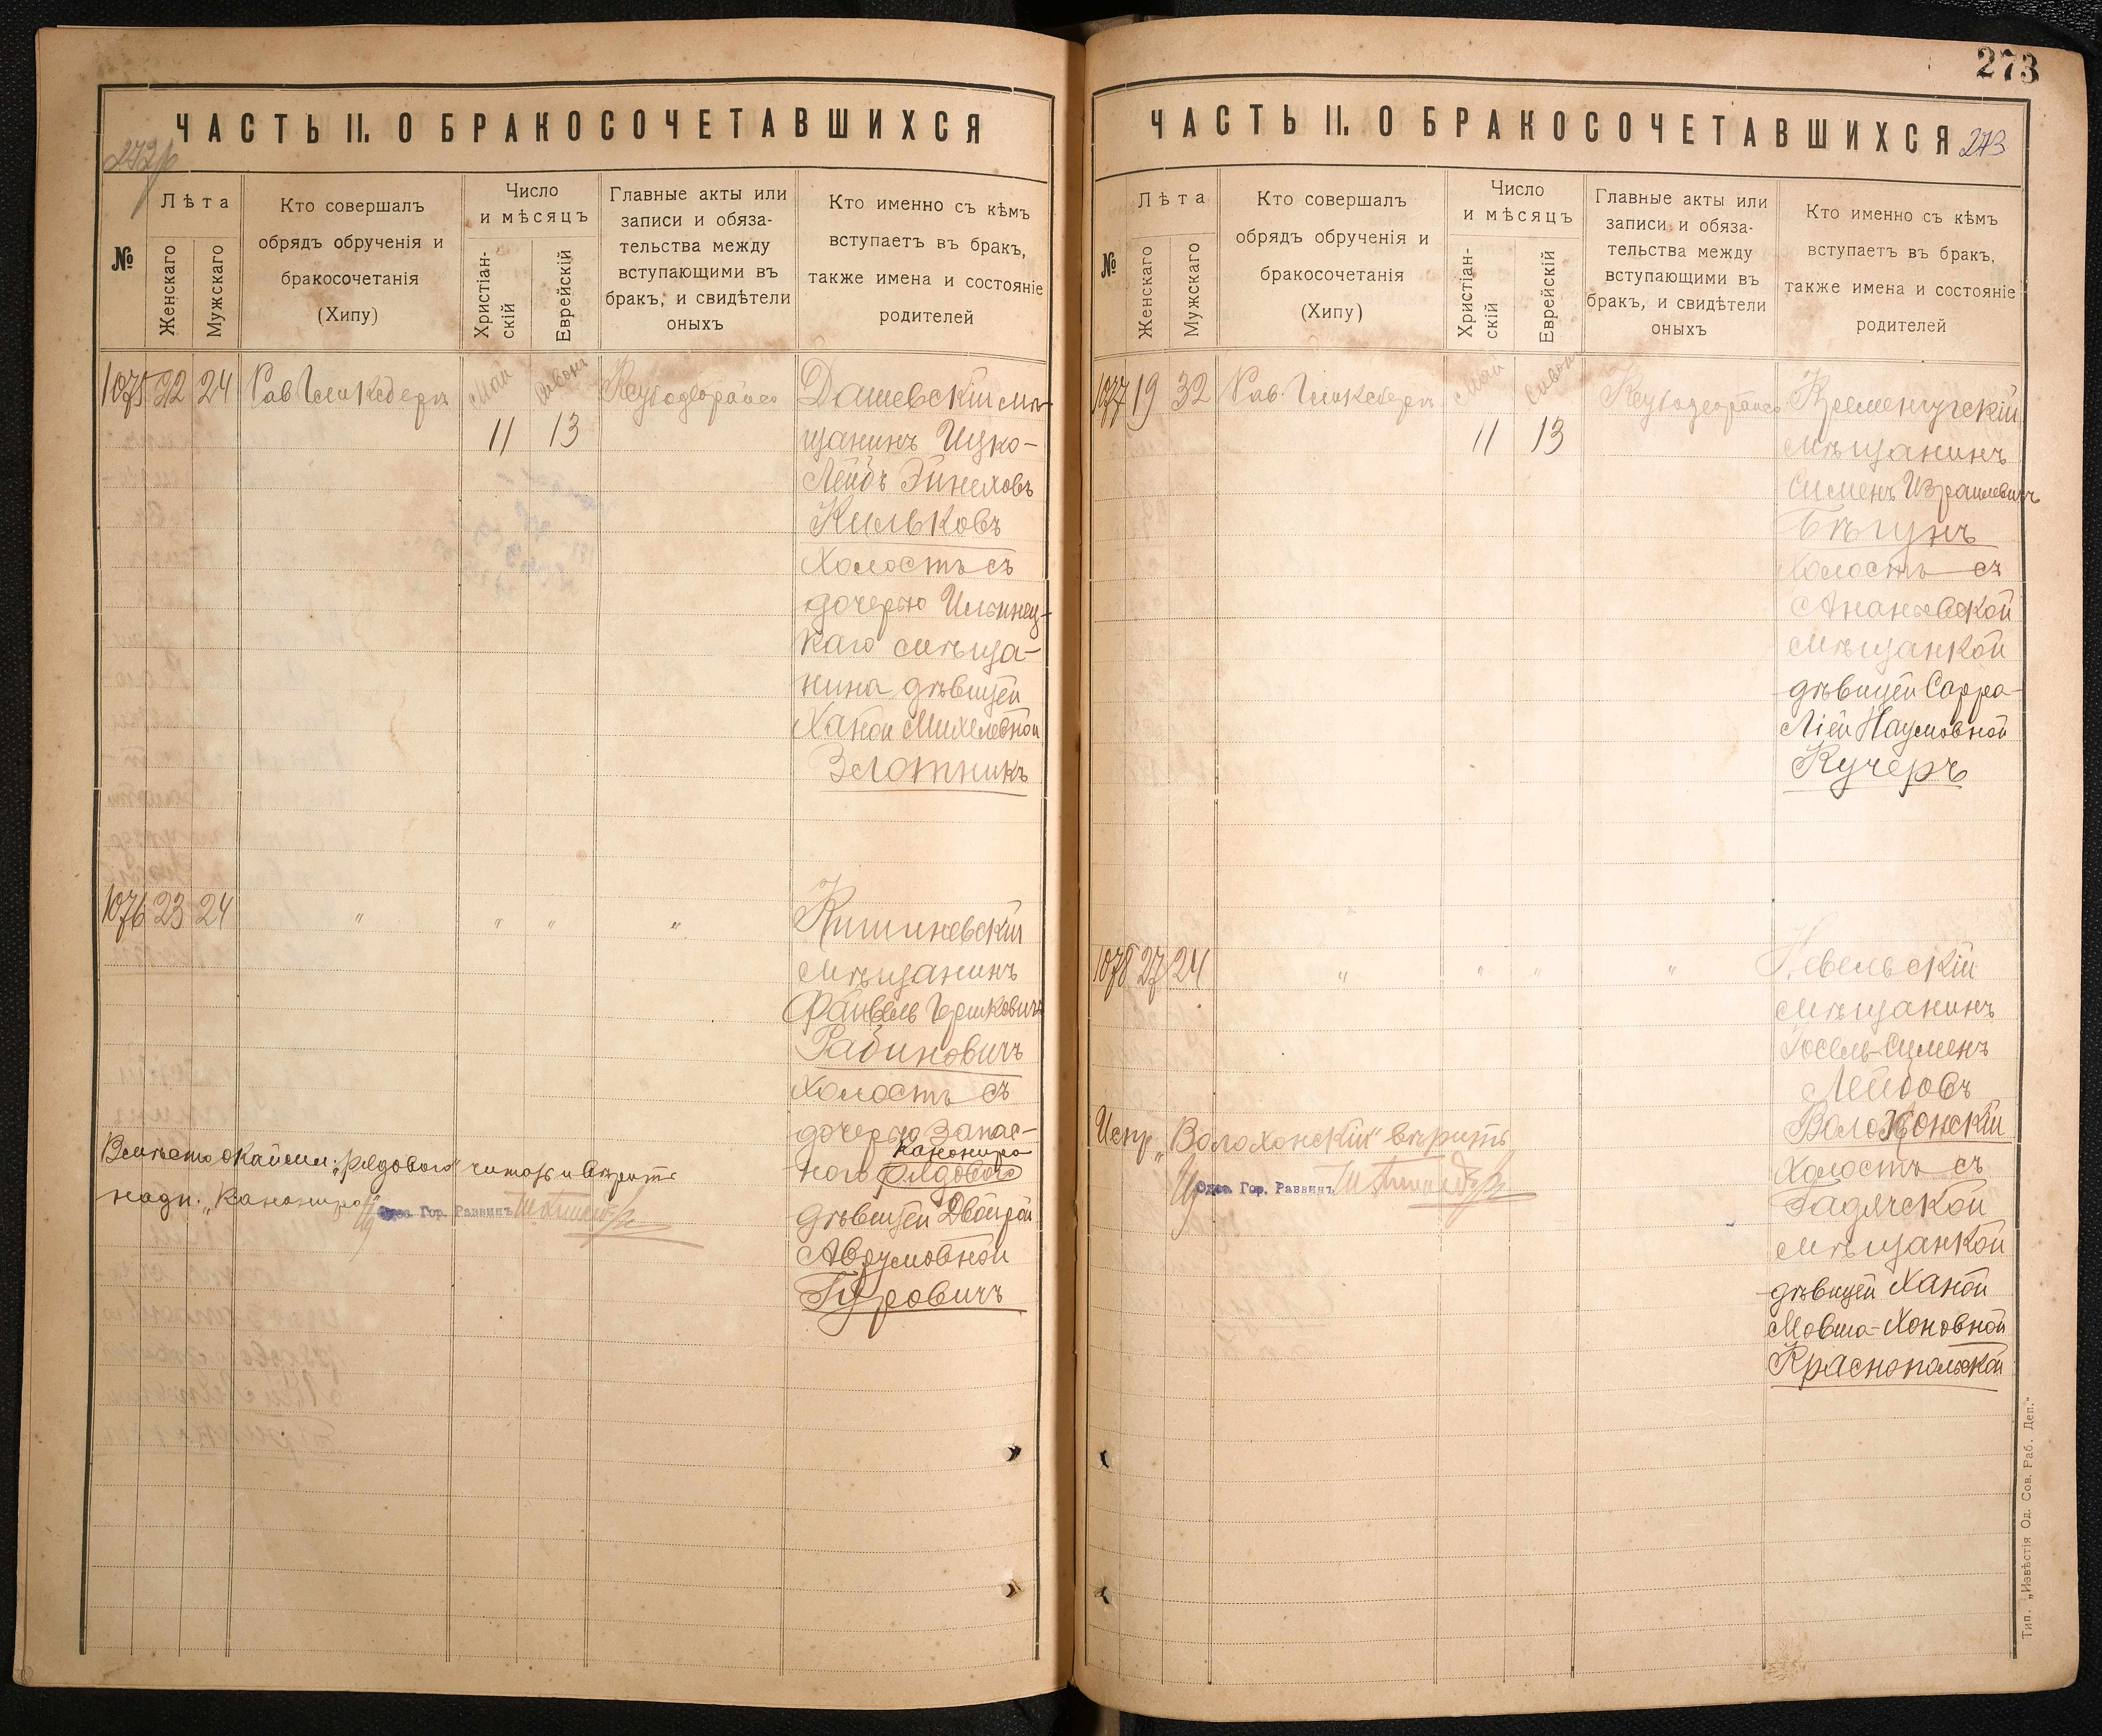 ЧАСТЬ II. О БРАКОСОЧЕТАВШИХСЯ
№
Лѣта
Женскаго
Мужскаго
Кто совершалъ
обрядъ обрученія и
бракосочетанія
(Хипу)
Число
и мѣсяцъ
Христіан-
скій
Еврейскій
Главные акты или
записи и обяза-
тельства между
вступающими въ
бракъ, и свидѣтели
оныхъ
Кто именно съ кѣмъ
вступаетъ въ бракъ,
также имена и состояніе
родителей
1075 22 24 Рав. Гликсбергъ Май Сивонъ
11 13
Дашевскій мѣ-
щанинъ Ицко-
Лейбъ Эйнеховъ
Кильковъ
холостъ съ
дочерью Ильинец-
каго мѣща-
нина дѣвицей
Ханой Михелевной
Золотникъ
1076 23 24 " " " "
Кишиневскій
мѣщанинъ
Файвель Гершковичъ
Рабиновичъ
холостъ съ
дочерью запас-
канонира
ного рядового
дѣвицей Двойрой
Аврумовной
Гуровичъ
Вмѣсто окаймл. „рядового" читать и вѣрить
надп. „канонира"
Одес. Гор. Раввинъ
273
ЧАСТЬ II. О БРАКОСОЧЕТАВШИХСЯ 273
№
Лѣта
Женскаго
Мужскаго
Кто совершалъ
обрядъ обрученія и
бракосочетанія
(Хипу)
Число
и мѣсяцъ
Христіан-
скій
Еврейскій
Главные акты или
записи и обяза-
тельства между
вступающими въ
бракъ, и свидѣтели
оныхъ
Кто именно съ кѣмъ
вступаетъ въ бракъ,
также имена и состояніе
родителей
1077 19 32 Рав. Гликсбергъ Май Сивонъ
11 13
Кременчугскій
мѣщанинъ
Сименъ Израилевичъ
Бѣгунъ
холостъ съ
Ананьевской
мѣщанкой
дѣвицей Сарра-
Ліей Наумовной
Кучеръ
1078 27 24 " " " "
Невельскій
мѣщанинъ
Іосель-Сименъ
Лейбовъ
Волохонскій
холостъ съ
Гадячской
мѣщанкой
дѣвицей Ханой
Мовша-Хоновной
Краснопольской
Испр. „Волохонскій" вѣрить
Одес. Гор. Раввинъ
Тип. „Извѣстія Од. Сов. Раб. Деп."